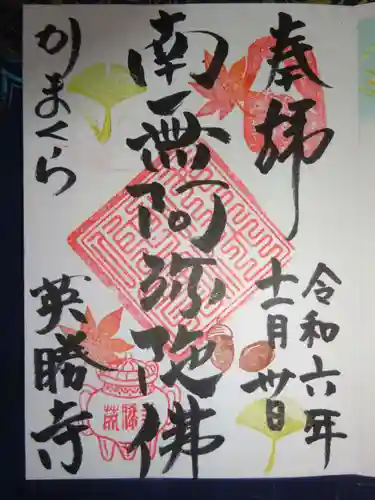 奉拝
令和六年
十一月卅日
南無阿弥陀佛
かまくら
英勝寺